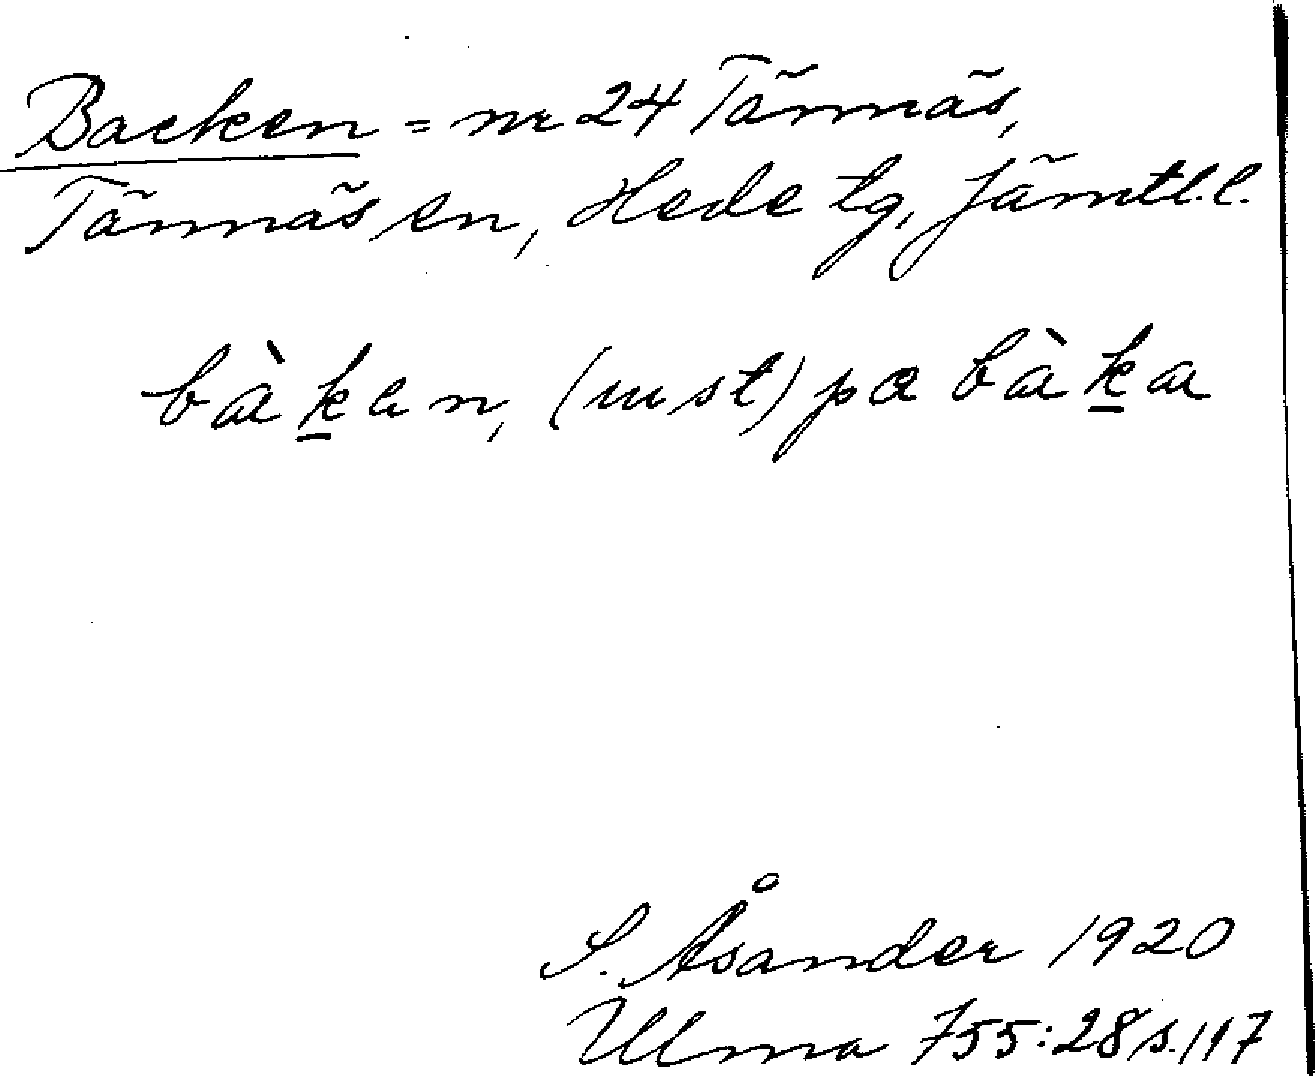 Backen = nr 24 Tännäs,
Tännäs sn, Hede tg, Jämtl.l.
bàk̠en, (inst) pa bàk̠a
S. Åsander 1920
Ulma 755:28 s. 117